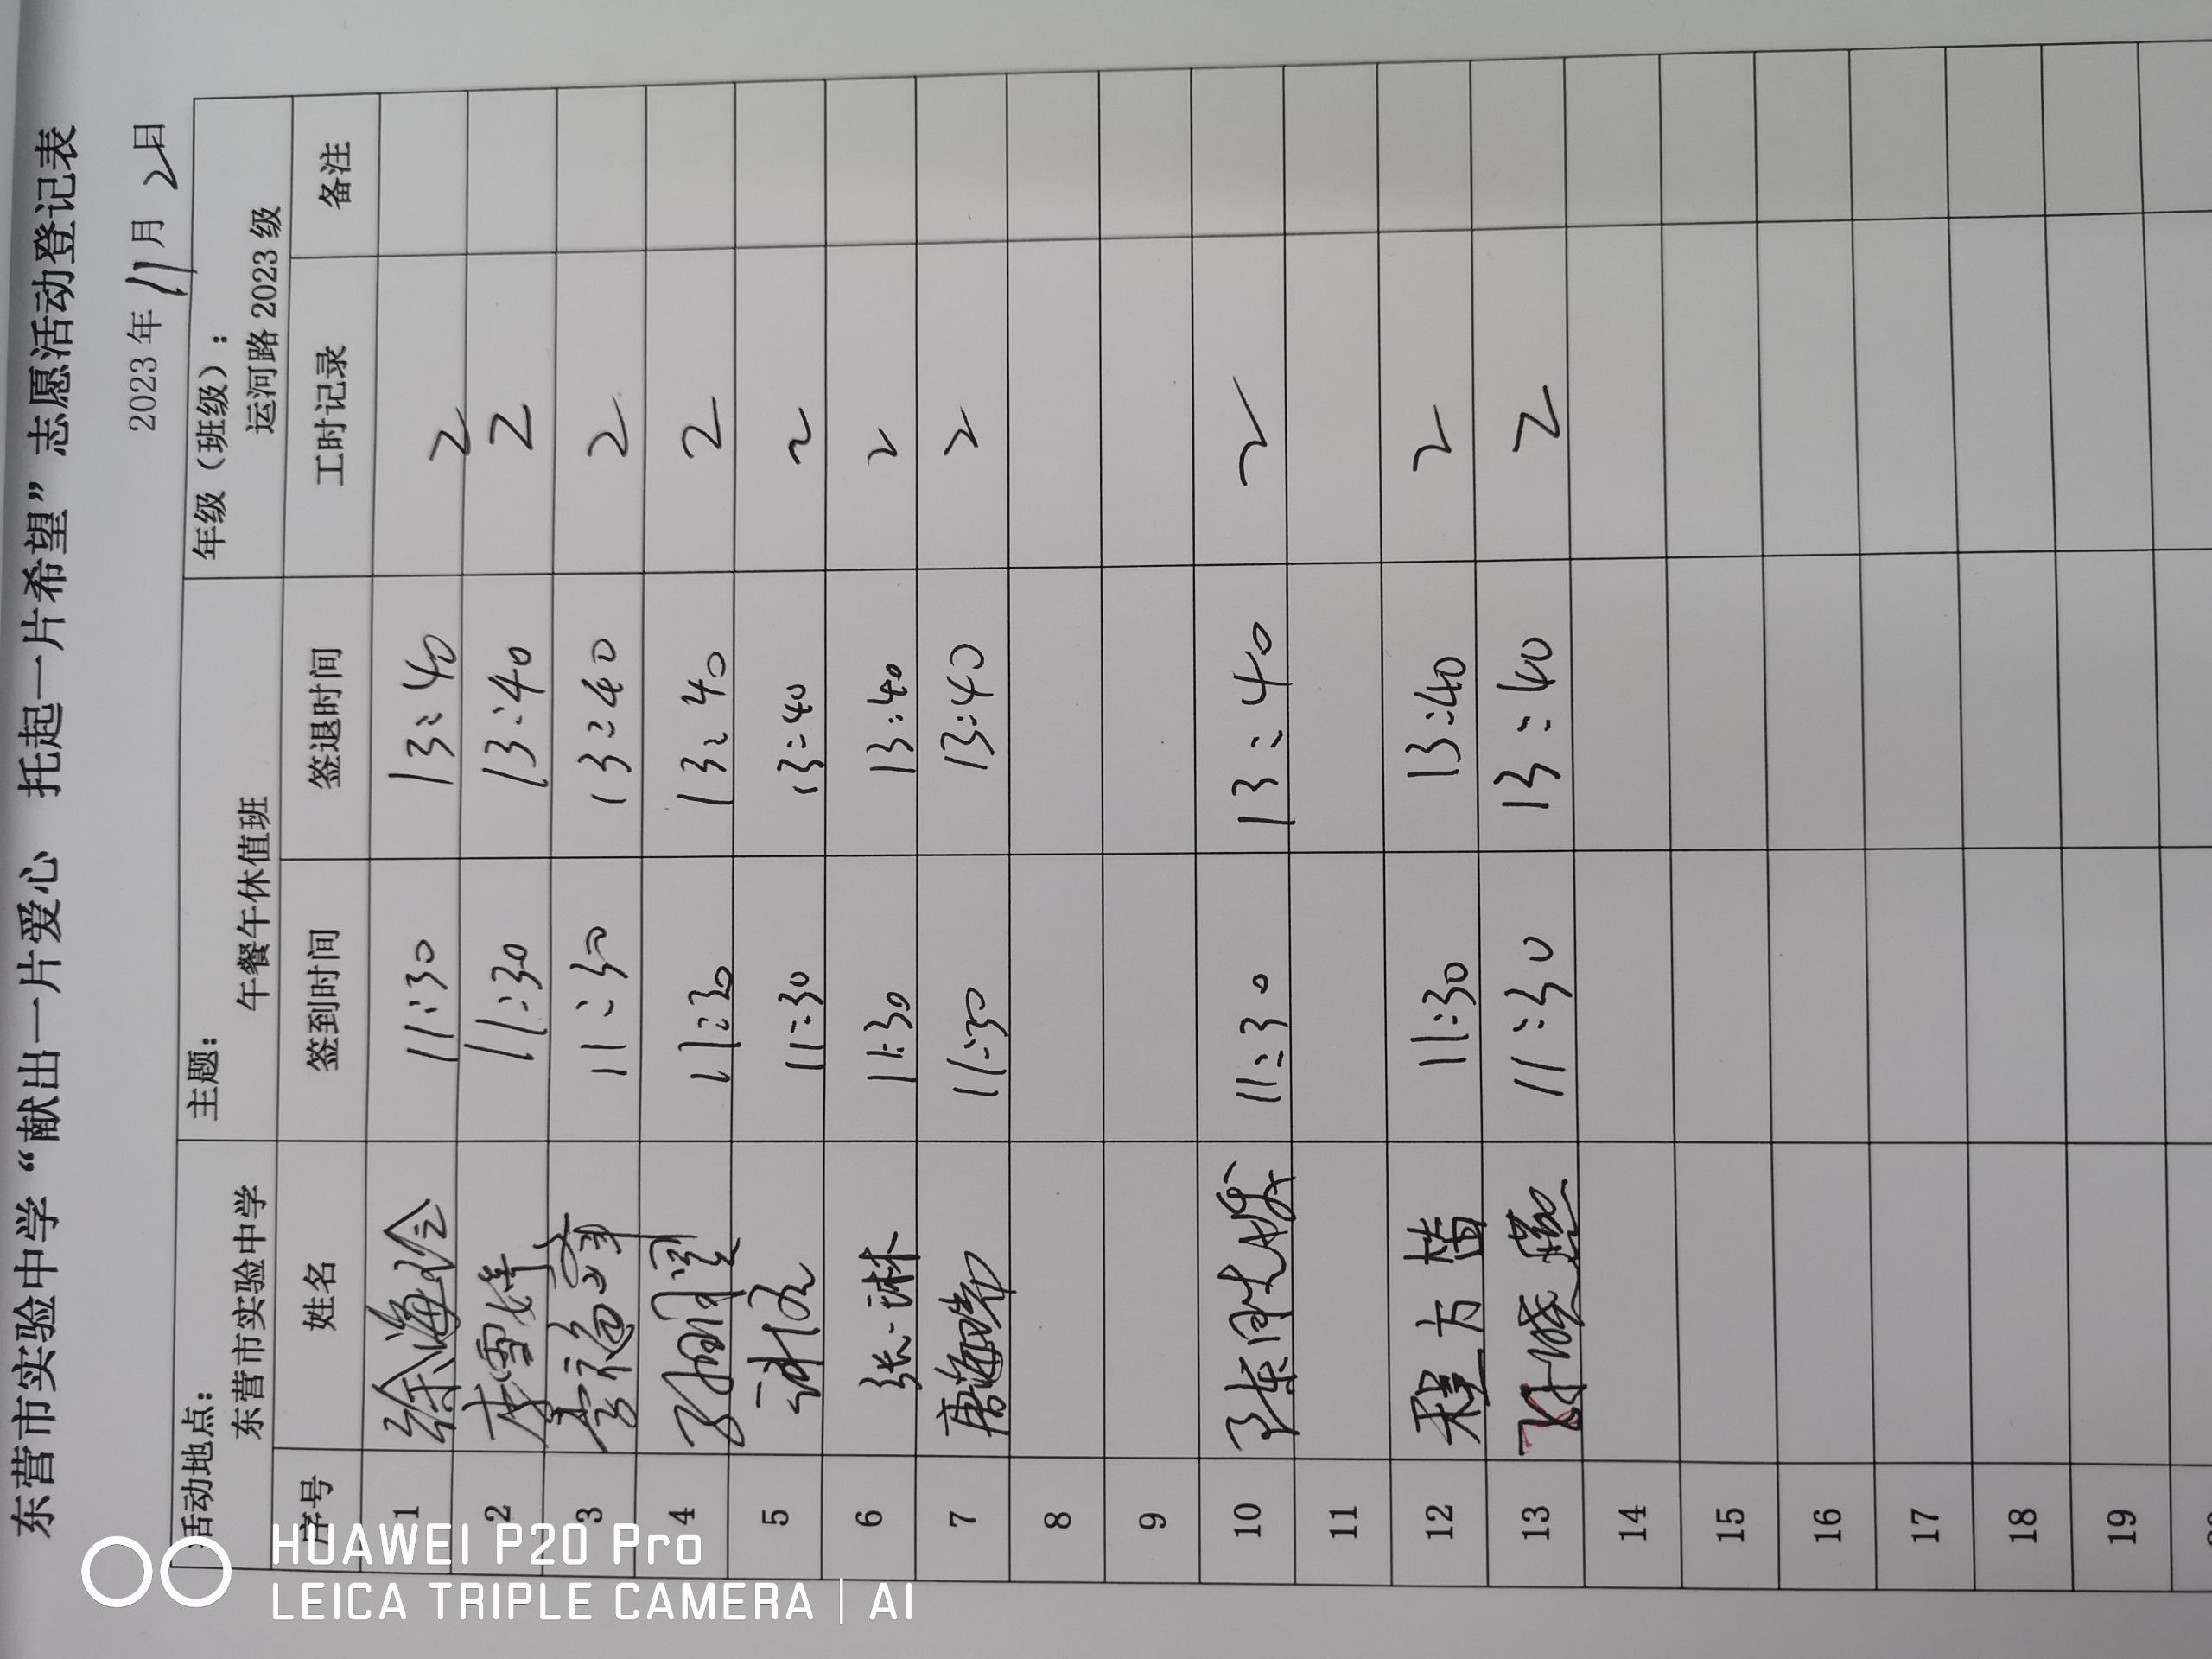 东营市实验中学“献出一片爱心 托起一片希望”志愿活动登记表
2023年11月2日
活动地点: 主题: 年级（班级）:
东营市实验中学 午餐午休值班 运河路2023级
序号 姓名 签到时间 签退时间 工时记录 备注
1 徐海玲 11:30 13:40 2
2 李雪婷 11:30 13:40 2
3 李福 11:30 13:40 2
4 11:30 13:40 2
5 11:30 13:40 2
6 张琳 11:30 13:40 2
7 唐海 11:30 13:40 2
8
9
10 11:30 13:40 2
11
12 程方 11:30 13:40 2
13 晓燕 11:30 13:40 2
14
15
16
17
18
19
HUAWEI P20 Pro
LEICA TRIPLE CAMERA | AI